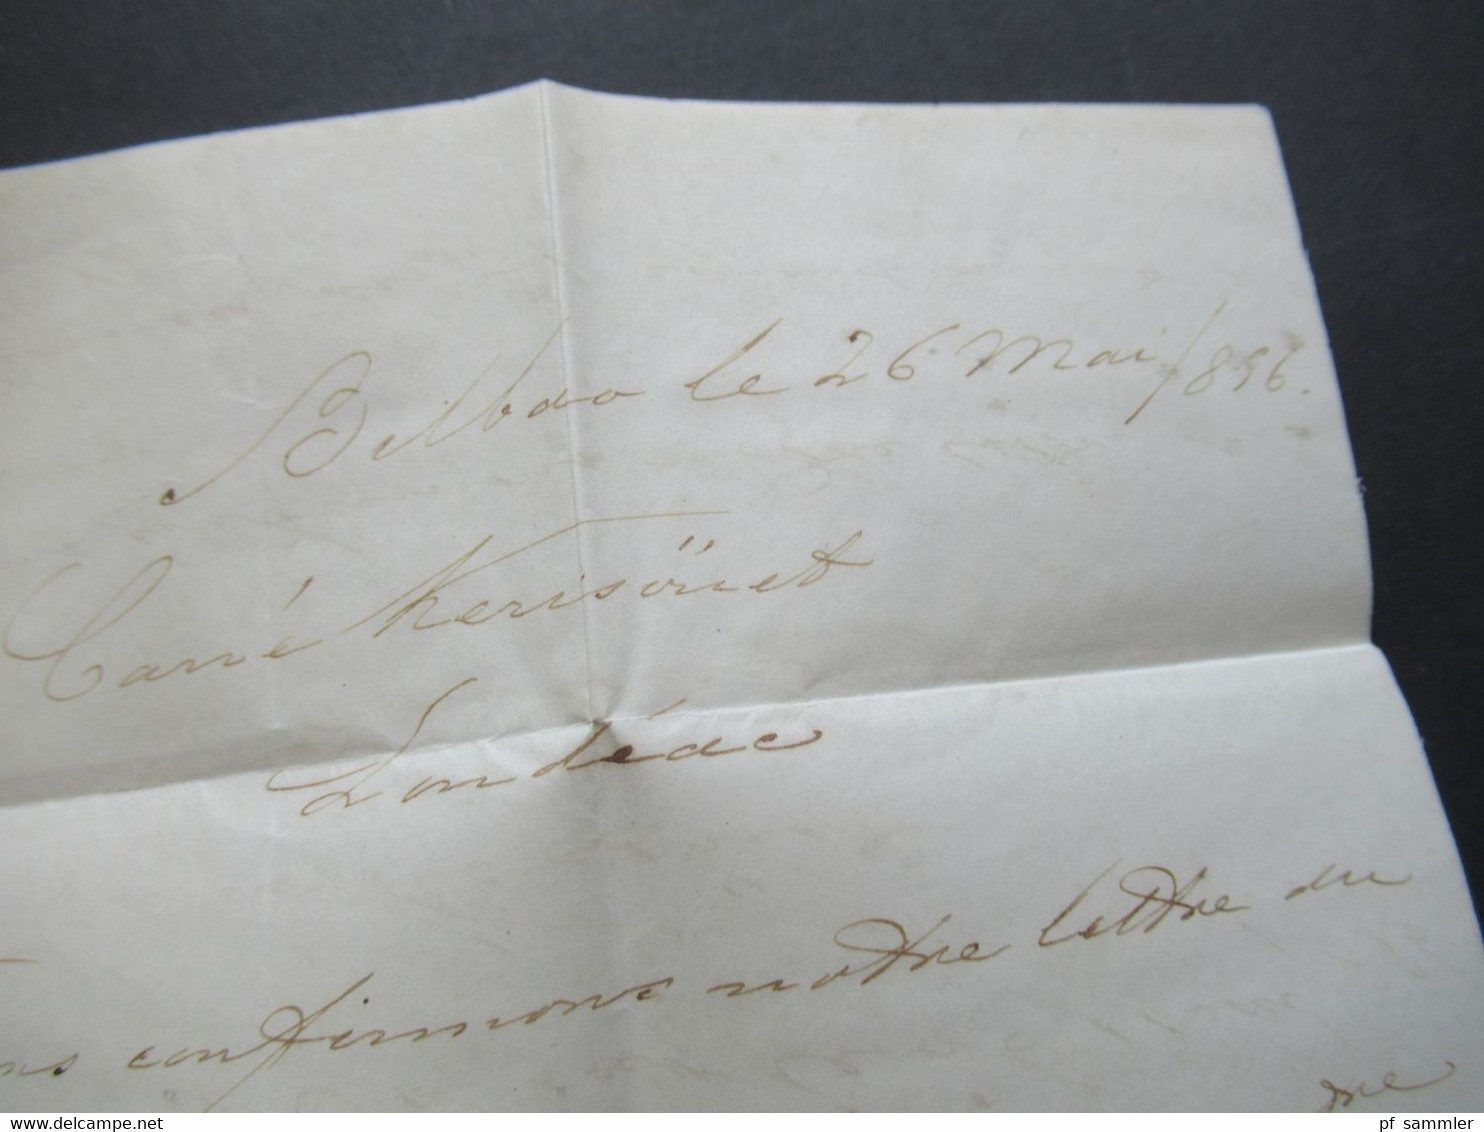 Bilbao le 26 Mai /856.
Carré Kerisöuet
Loudéac
confirmons notre lettre du
me
pf sammler